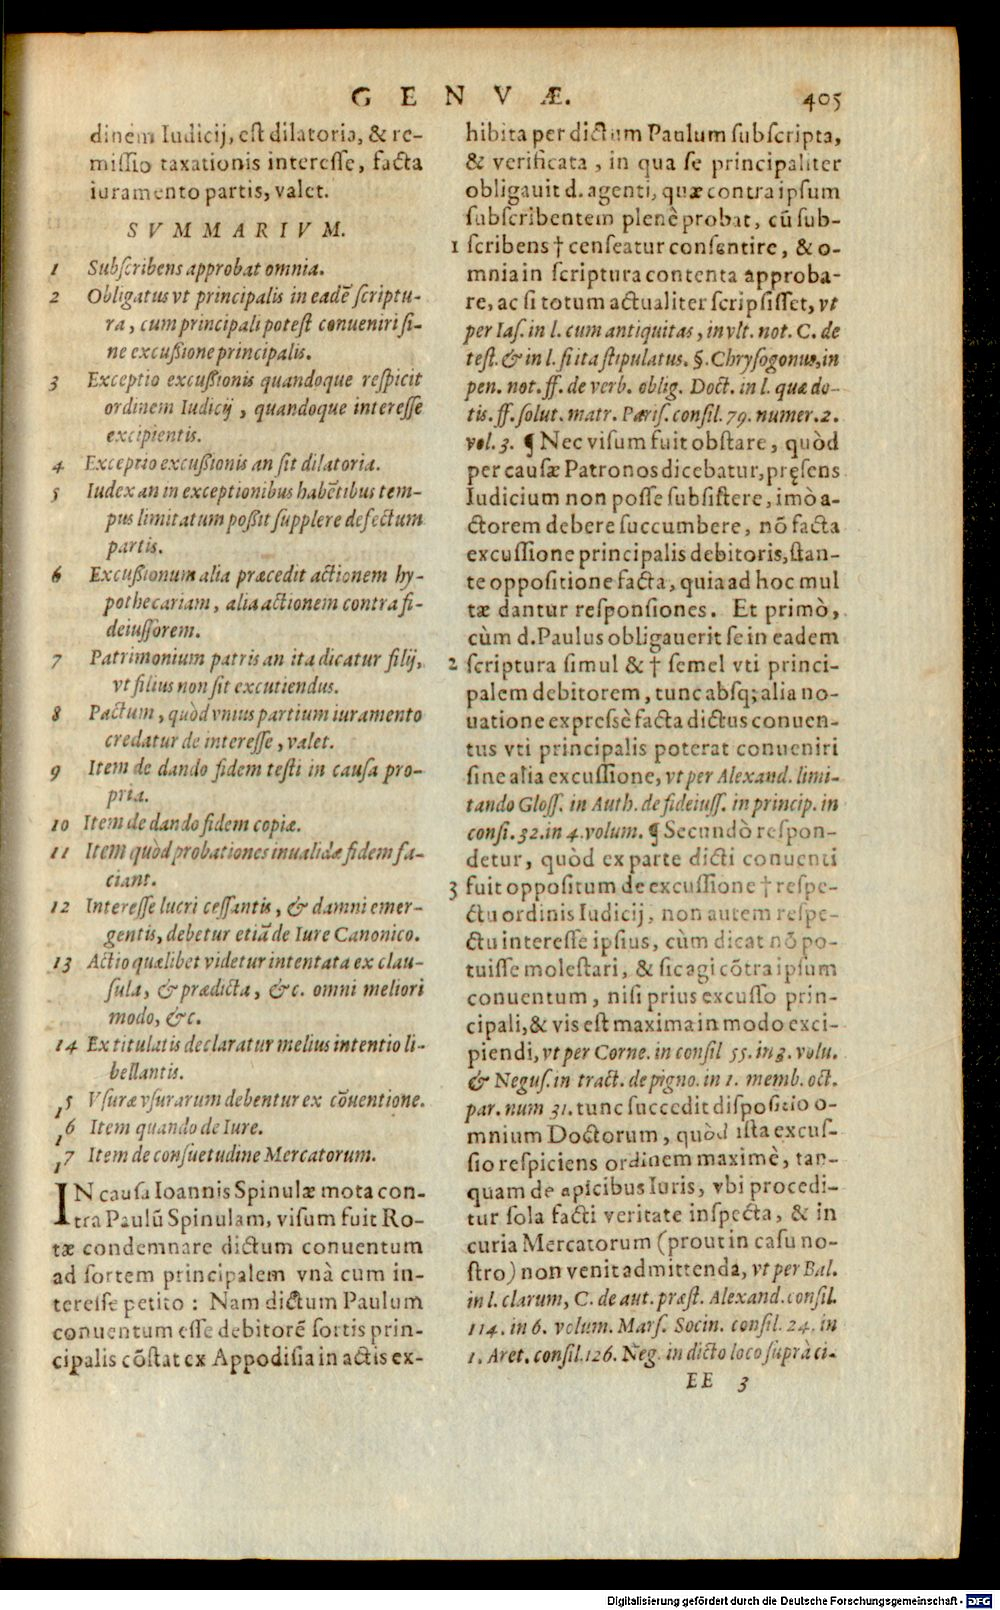 GENVÆ.
405
dinem Iudicij, est dilatoria, & re-
missio taxationis interesse, facta
iuramento partis, valet.
SVMMARIVM.
1 Subscribens approbat omnia.
2 Obligatus vt principalis in eadē scriptu-
ra, cum principali potest conueniri si-
ne excußione principalis.
3 Exceptio excußionis quandoque respicit
ordinem Iudicij, quandoque interesse
excipientis.
4 Exceptio excußionis an sit dilatoria.
5 Iudex an in exceptionibus habētibus tem-
pus limitatum poßit supplere defectum
partis.
6 Excußionum alia præcedit actionem hy-
pothecariam, alia actionem contra fi-
deiussorem.
7 Patrimonium patris an ita dicatur filij,
vt filius non sit excutiendus.
8 Pactum, quòd vnius partium iuramento
credatur de interesse, valet.
9 Item de dando fidem testi in causa pro-
pria.
10 Item de dando fidem copiæ.
11 Item quòd probationes inualidæ fidem fa-
ciant.
12 Interesse lucri cessantis, & damni emer-
gentis, debetur etiā de Iure Canonico.
13 Actio quælibet videtur intentata ex clau-
sula, & prædicta, &c. omni meliori
modo, &c.
14 Ex titulatis declaratur melius intentio li-
bellantis.
15 Vsuræ vsurarum debentur ex cōuentione.
16 Item quando de Iure.
17 Item de consuetudine Mercatorum.
IN causa Ioannis Spinulæ mota con-
tra Paulū Spinulam, visum fuit Ro-
tæ condemnare dictum conuentum
ad sortem principalem vnà cum in-
teresse petito : Nam dictum Paulum
conuentum esse debitorē sortis prin-
cipalis cōstat ex Appodisia in actis ex-
hibita per dictum Paulum subscripta,
& verificata, in qua se principaliter
obligauit d. agenti, quæ contra ipsum
subscribentem plenè probat, cū sub-
1 scribens † censeatur consentire, & o-
mnia in scriptura contenta approba-
re, ac si totum actualiter scripsisset, vt
per Ias. in l. cum antiquitas, in vlt. not. C. de
test. & in l. si ita stipulatus. §. Chrysogonus, in
pen. not. ff. de verb. oblig. Doct. in l. quæ do-
tis. ff. solut. matr. Paris. consil. 79. numer. 2.
vol. 3. ¶ Nec visum fuit obstare, quòd
per causæ Patronos dicebatur, pręsens
Iudicium non posse subsistere, imò a-
ctorem debere succumbere, nō facta
excussione principalis debitoris, stan-
te oppositione facta, quia ad hoc mul
tæ dantur responsiones. Et primò,
cùm d. Paulus obligauerit se in eadem
2 scriptura simul & † semel vti princi-
palem debitorem, tunc absq; alia no-
uatione expressè facta dictus conuen-
tus vti principalis poterat conueniri
sine alia excussione, vt per Alexand. limi-
tando Gloss. in Auth. de fideiuss. in princip. in
consi. 32. in 4. volum. ¶ Secundò respon-
detur, quòd ex parte dicti conuenti
3 fuit oppositum de excussione † respe-
ctu ordinis Iudicij, non autem respe-
ctu interesse ipsius, cùm dicat nō po-
tuisse molestari, & sic agi cōtra ipsum
conuentum, nisi prius excusso prin-
cipali, & vis est maxima in modo exci-
piendi, vt per Corne. in consil 55. in 3. volu.
& Negus. in tract. de pigno. in 1. memb. oct.
par. num 31. tunc succedit dispositio o-
mnium Doctorum, quòd ista excus-
sio respiciens ordinem maximè, tan-
quam de apicibus Iuris, vbi procedi-
tur sola facti veritate inspecta, & in
curia Mercatorum (prout in casu no-
stro) non venit admittenda, vt per Bal.
in l. clarum, C. de aut. præst. Alexand. consil.
114. in 6. volum. Mars. Socin. consil. 24. in
1. Aret. consil. 126. Neg. in dicto loco suprà ci-
EE 3
Digitalisierung gefördert durch die Deutsche Forschungsgemeinschaft - DFG